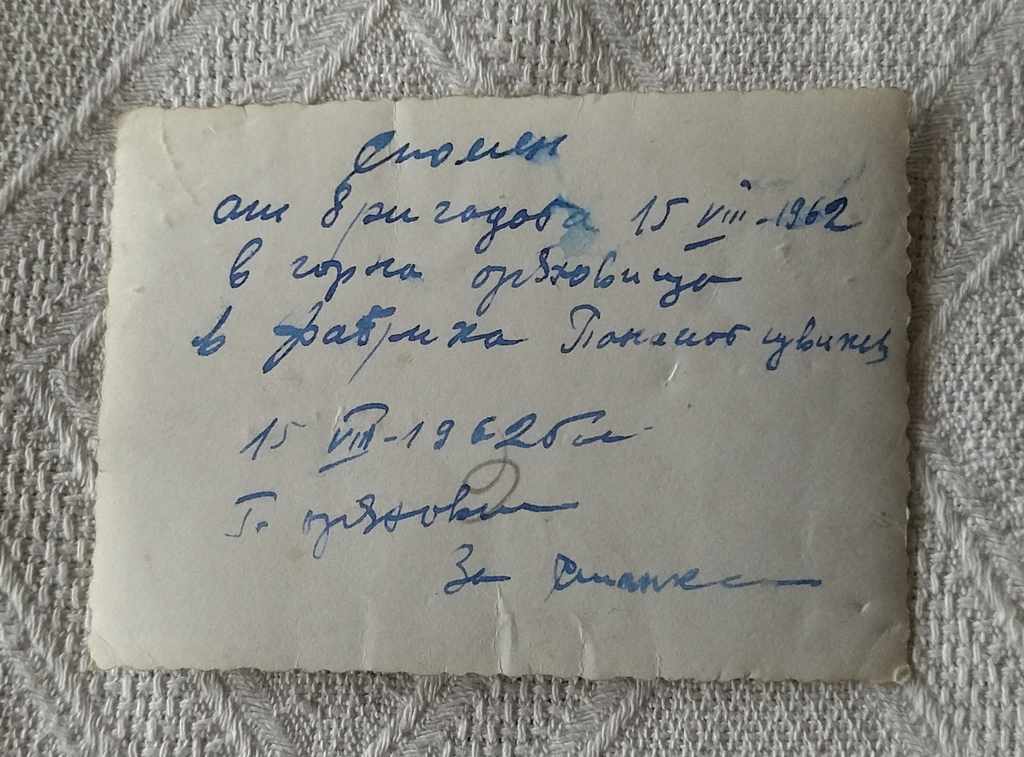 Спомен
от бригадата 15 VIII-1962
в горна оряховица
в фабрика Панайот цвикев
15 VIII-1962
Г. оряхови
За Станке